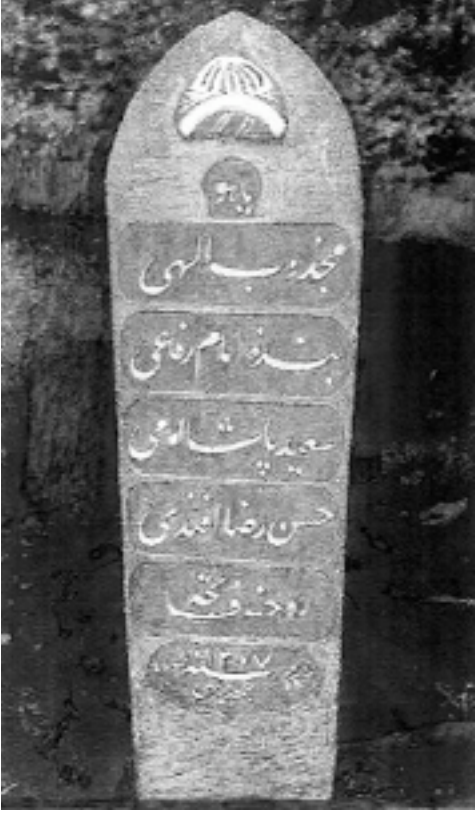 یا هو
مجذوب الهی
بنده امام رفاعی
سعید پاشا امامی
حسن رضا افندی
روحنه فاتحه
سنه ۱۳۰۷